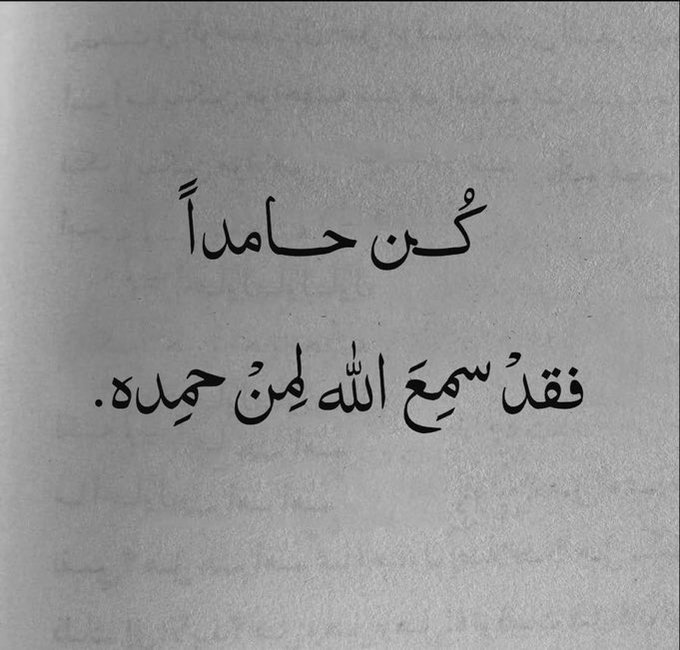 كُــن حــامداً
فقدْ سمِعَ الله لِمنْ حمِده.